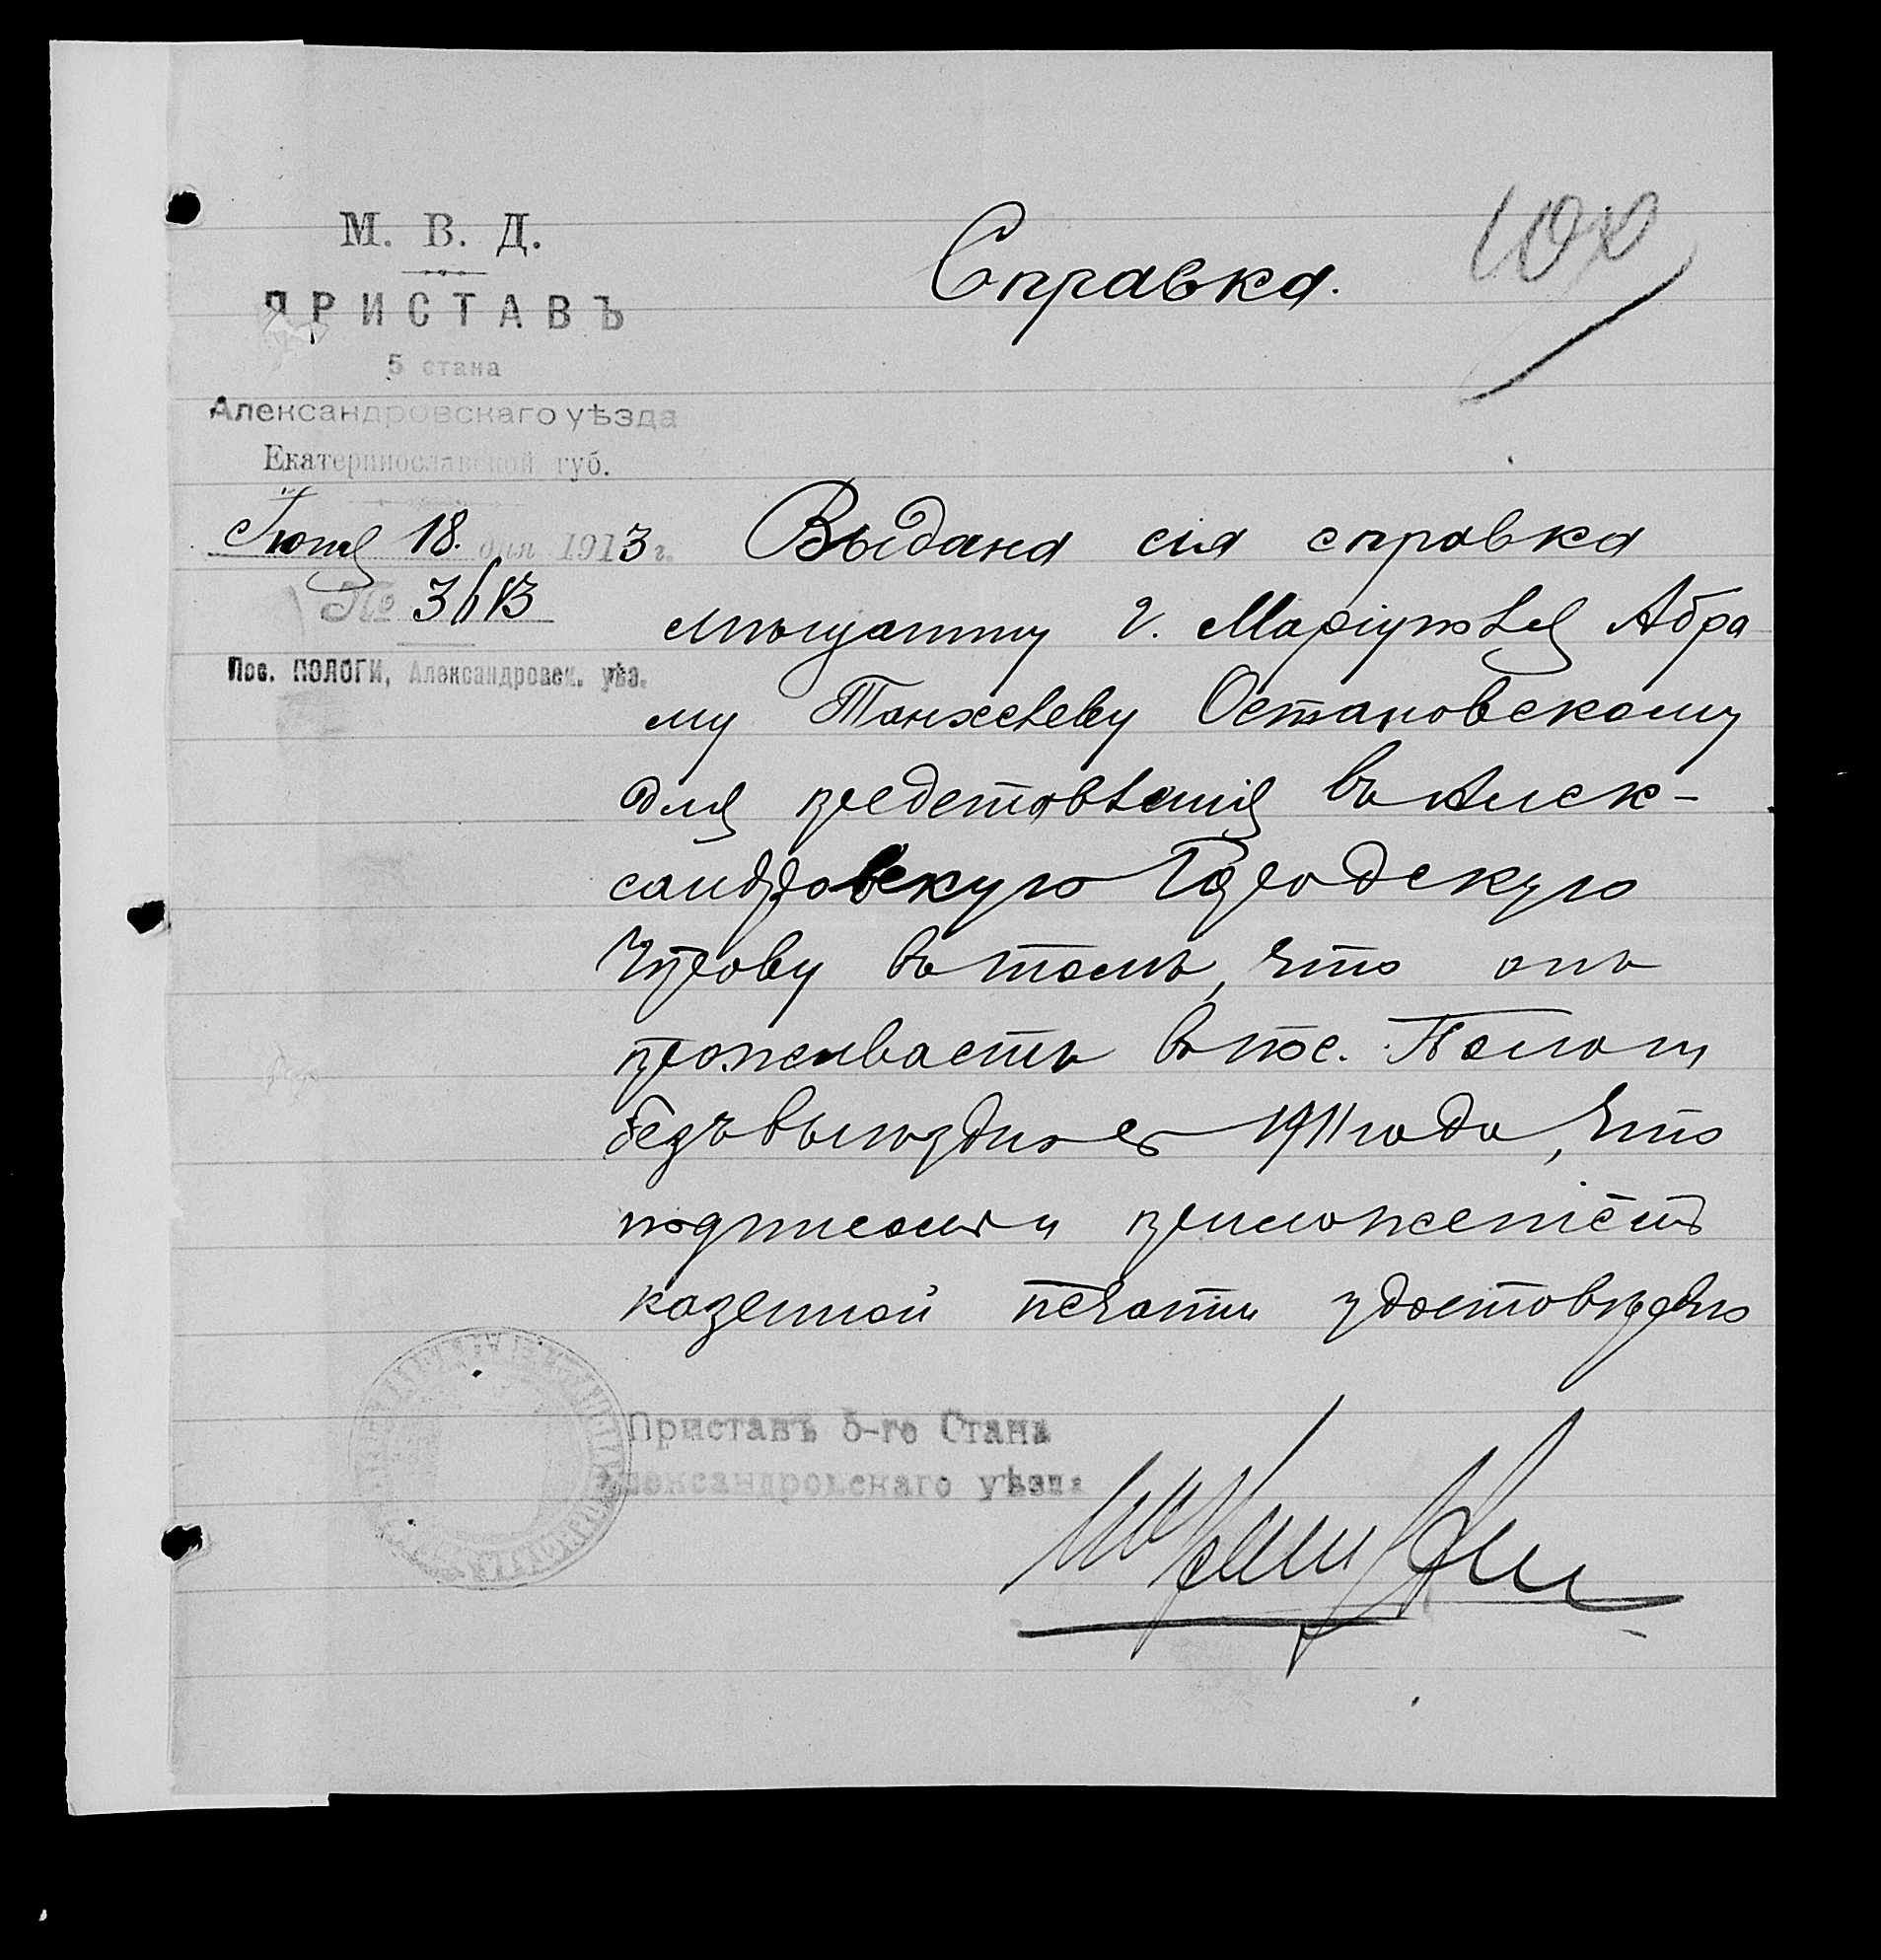 М. В. Д.
ПРИСТАВЪ
5 стана
Александровскаго уѣзда
Екатеринославской губ.
18. дня 1913 г.
№
Пос. ПОЛОГИ, Александровск. уѣз.
100
Справка.
Выдана сія справка
мѣщанину г. Маріуполя Абра
му Танхелеву Остановскому
для представленія въ Алек-
сандровскую Городскую
Управу въ томъ, что онъ
проживаетъ въ пос. Пологи
безъвыѣздно съ 1911 года, что
подписомъ и приложеніемъ
казенной печати удостовѣряю
Приставъ 5-го Стана
Александровскаго уѣзда